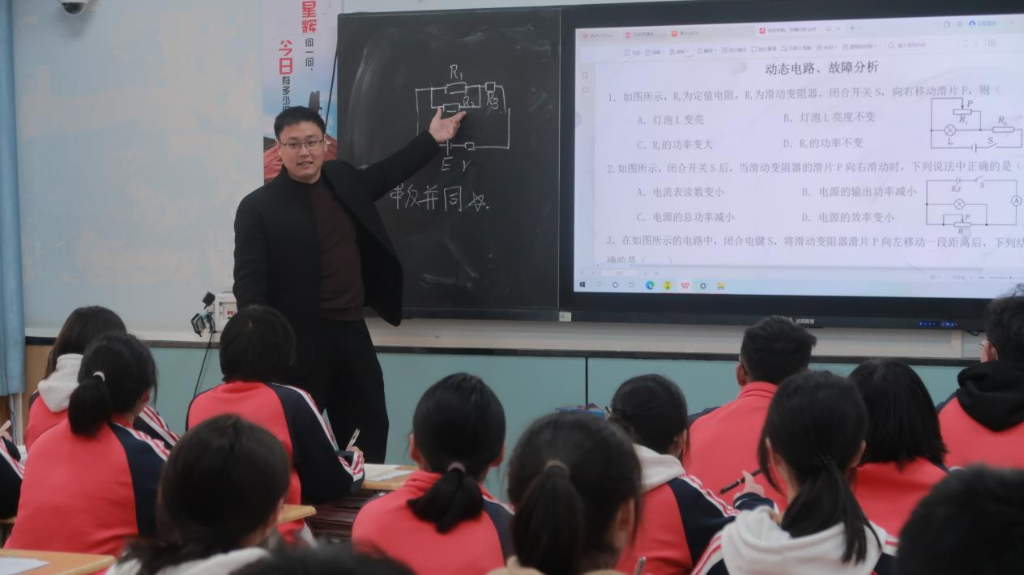 星辉
问一问，
今日有多少
R₁
R₂
R₃
E r
串反并同
动态电路、故障分析
1. 如图所示，R₀为定值电阻，R₁为滑动变阻器，闭合开关 S，向右移动滑片 P，则（
A. 灯泡 L 变亮
B. 灯泡 L 亮度不变
C. R₀的功率变大
D. R₀的功率不变
P
R₁
R₀
L
S
2. 如图所示，闭合开关 S 后，当滑动变阻器的滑片 P 向右滑动时，下列说法中正确的是（
A. 电流表读数变小
B. 电源的输出功率减小
C. 电源的总功率减小
D. 电源的效率变小
S
A
P
R
3. 在如图所示的电路中，闭合电键 S，将滑动变阻器滑片 P 向左移动一段距离后，下列结
确的是（ ）